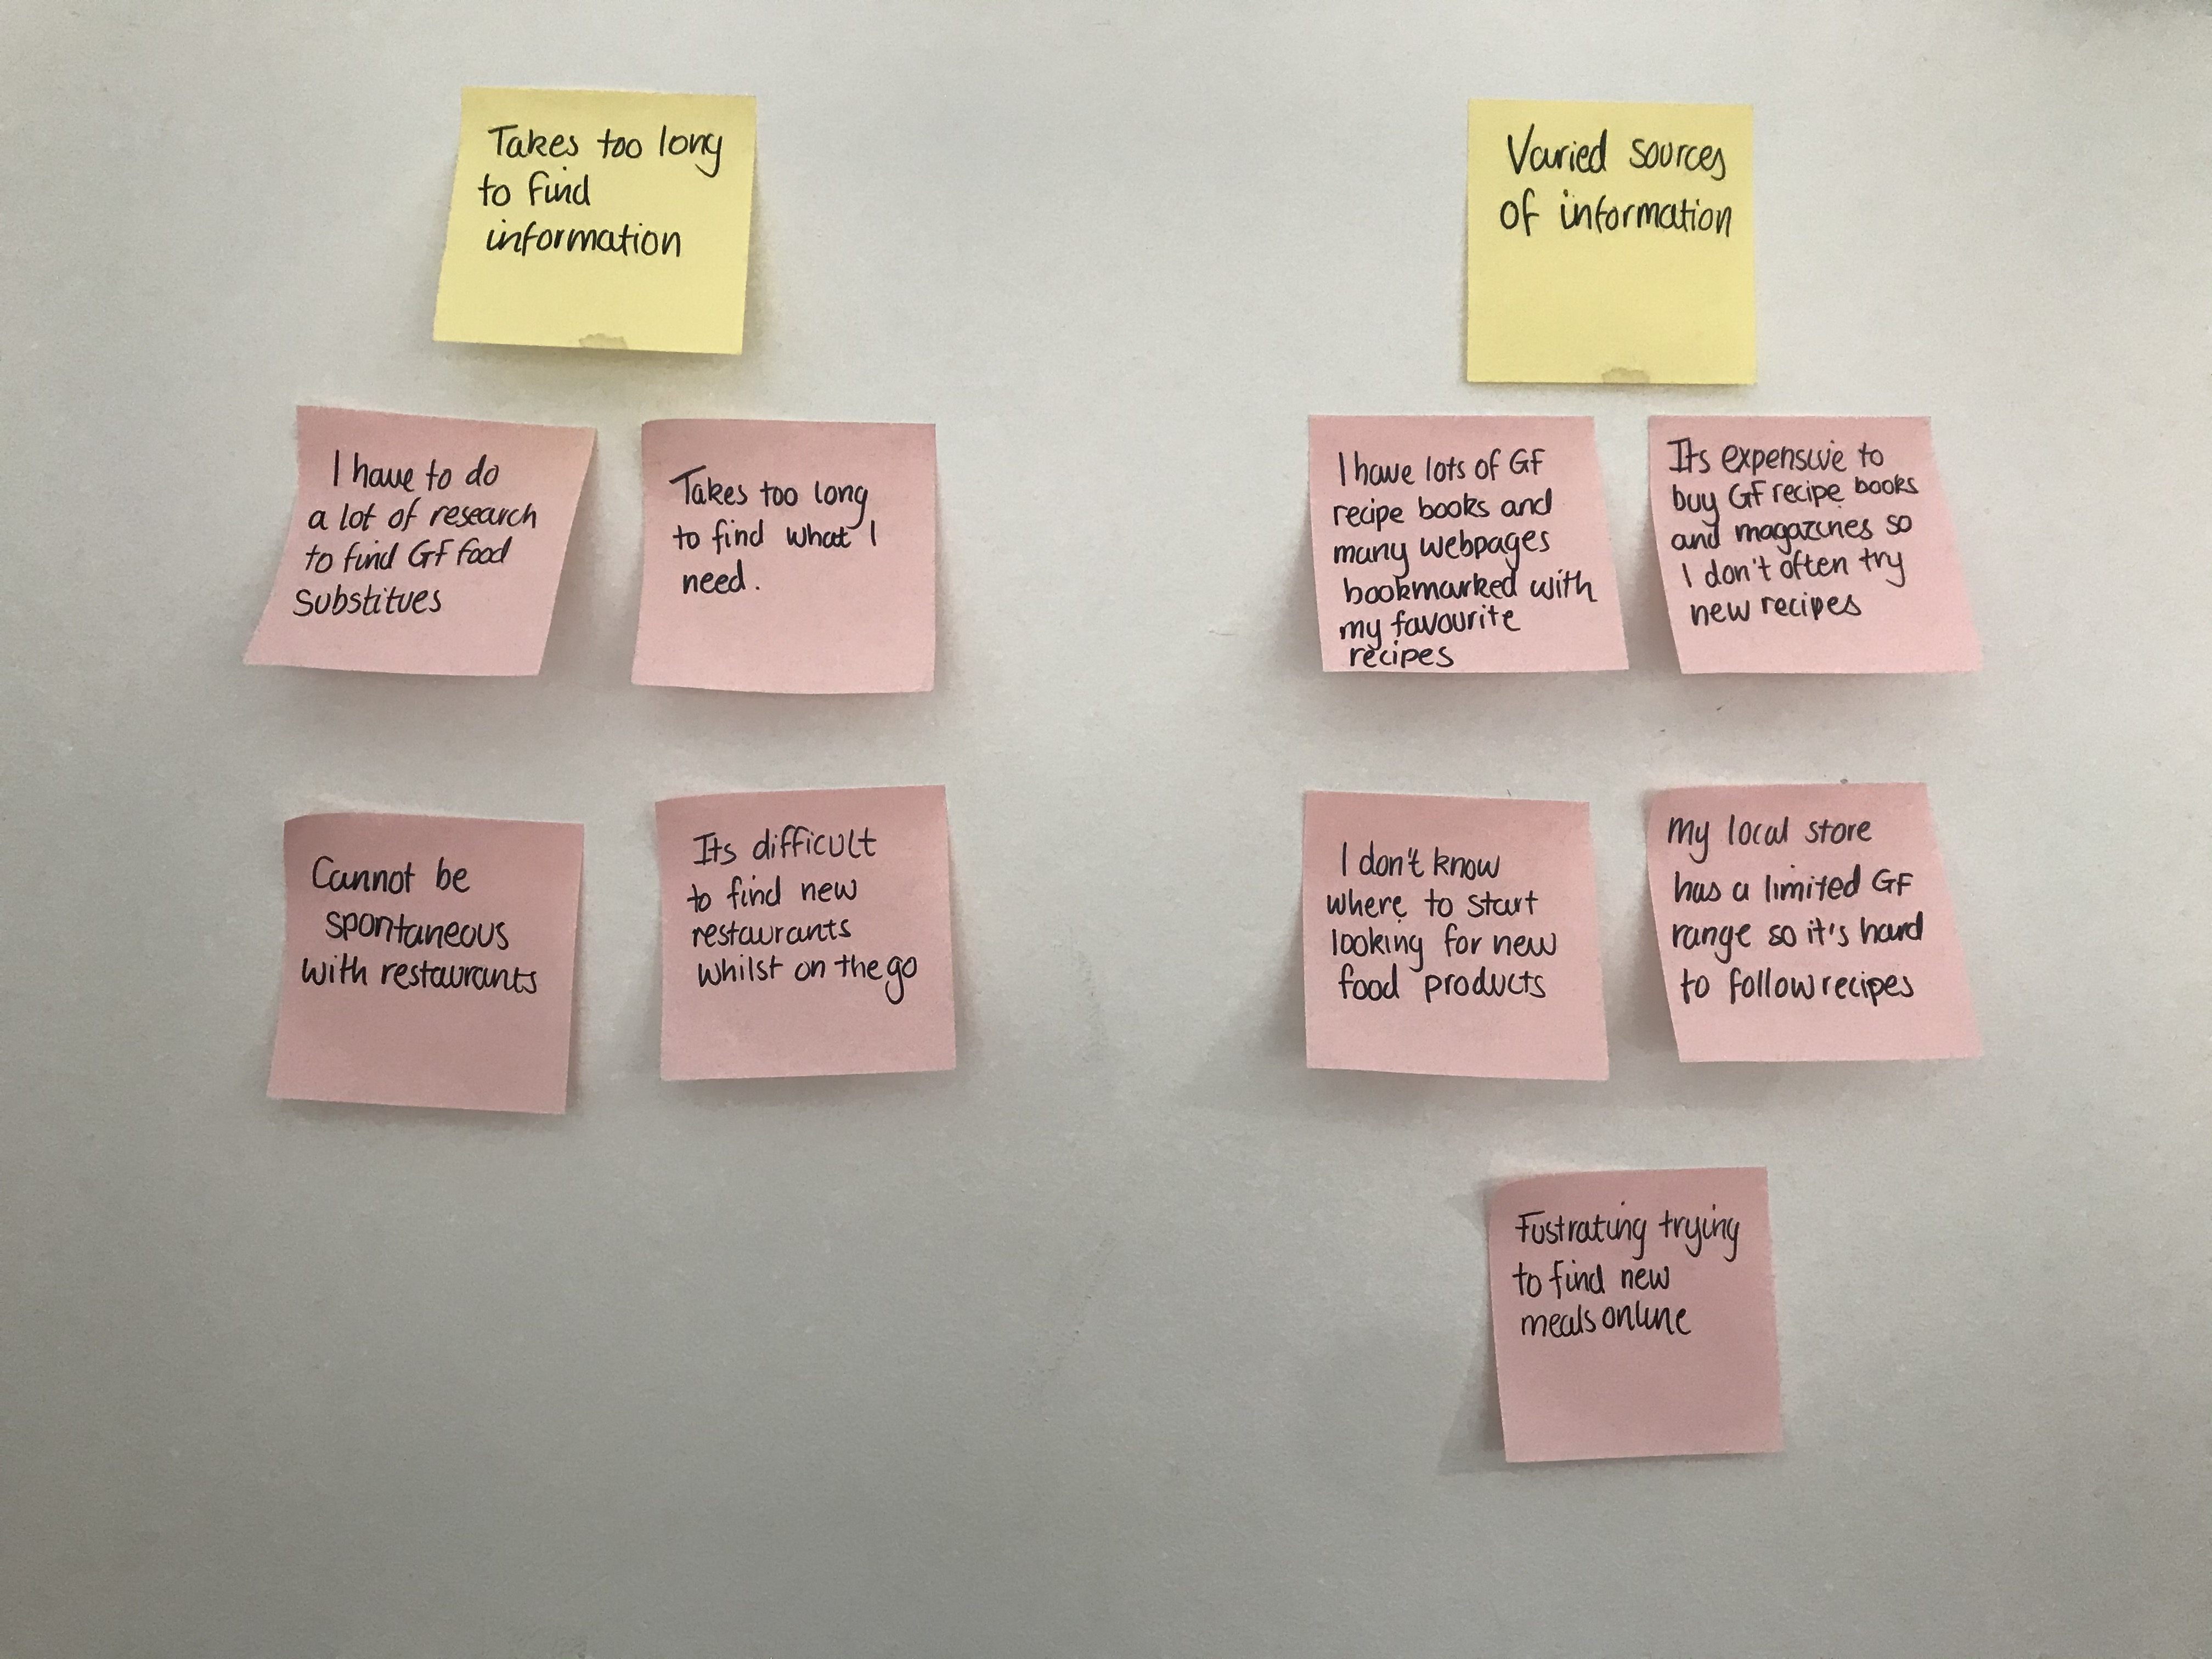 Takes too long
to find
information
I have to do
a lot of research
to find GF food
substitues
Takes too long
to find what I
need.
Cannot be
spontaneous
with restaurants
Its difficult
to find new
restaurants
whilst on the go
Varied sources
of information
I have lots of GF
recipe books and
many webpages
bookmarked with
my favourite
recipes
Its expensive to
buy GF recipe books
and magazines so
I don't often try
new recipes
I don't know
where to start
looking for new
food products
My local store
has a limited GF
range so it's hard
to follow recipes
Fustrating trying
to find new
meals online